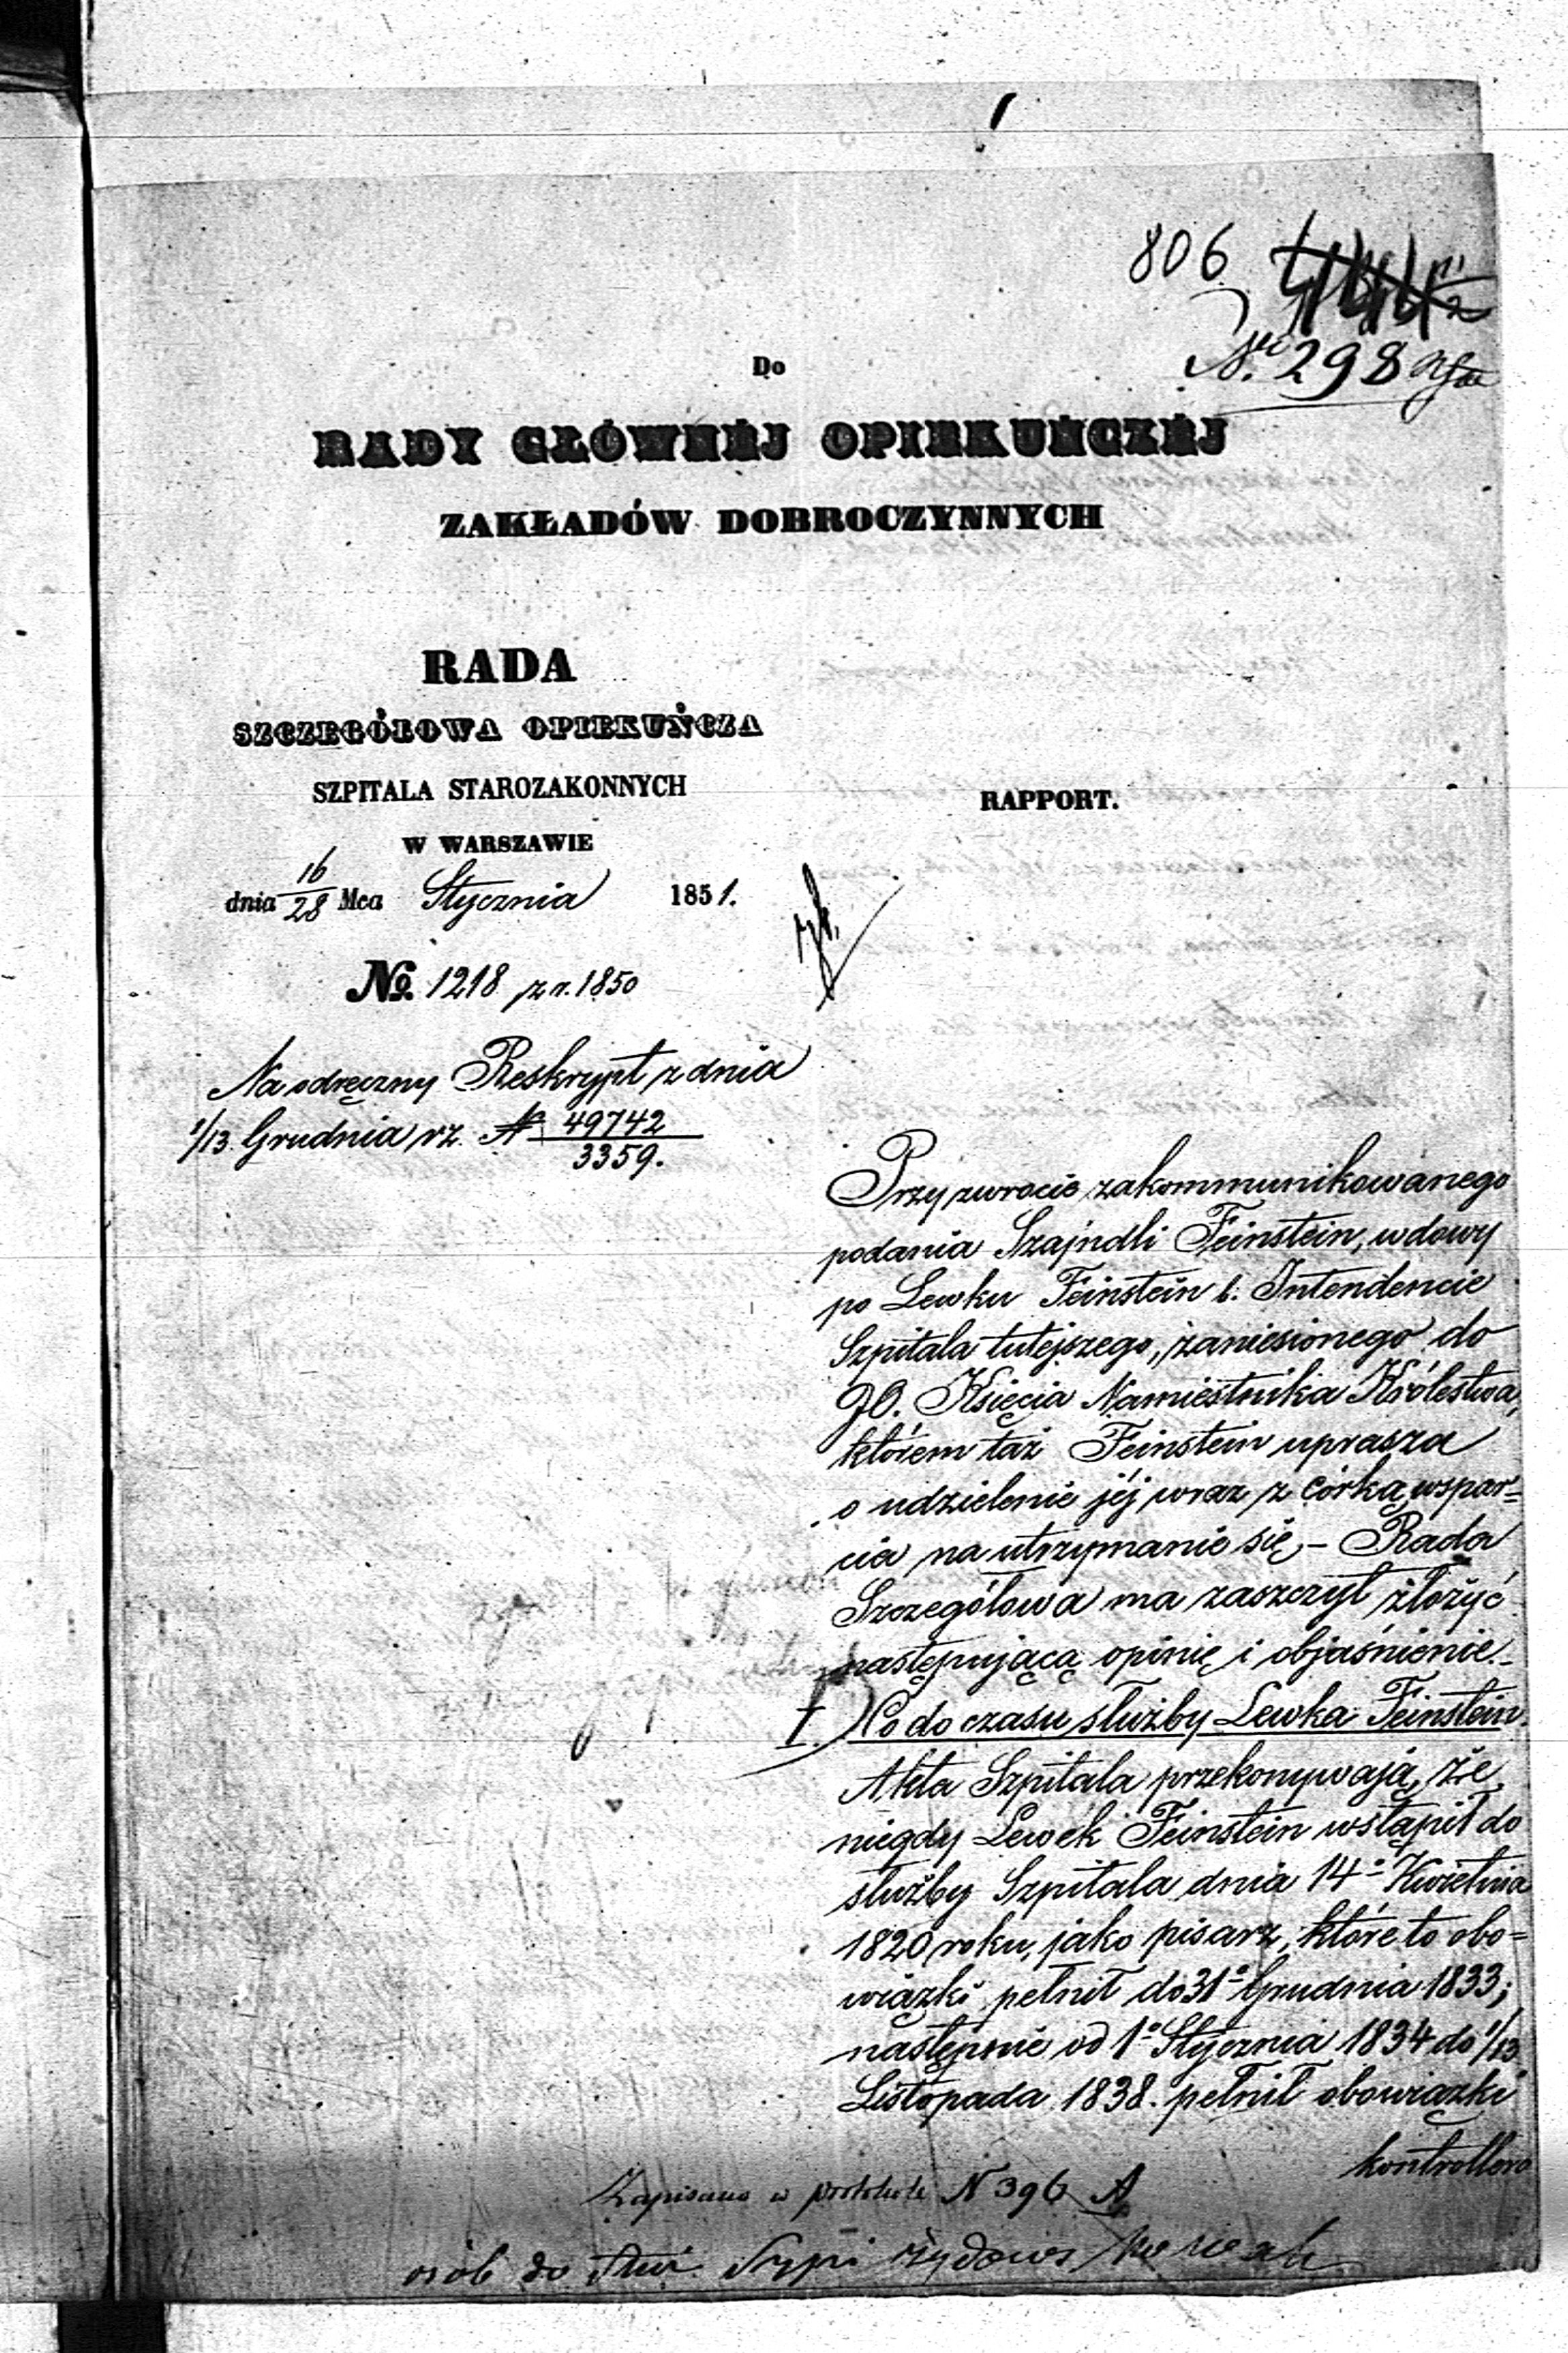 806
№ 298
Do
RADY GŁÓWNÉJ OPIEKUŃCZÉJ
ZAKŁADÓW DOBROCZYNNYCH
RADA
SZCZEGÓŁOWA OPIEKUŃCZA
SZPITALA STAROZAKONNYCH
W WARSZAWIE
dnia 16/28 Mca Stycznia 1851.
№ 1218 z r. 1850
Na odręczny Reskrypt z dnia
1/13 Grudnia rz. № 49742
3359.
RAPPORT.
Przy zwrocie zakommunikowanego
podania Szajndli Feinstein, wdowy
po Lewku Feinstein b. Intendencie
Szpitala tutejszego, zaniesionego do
JO. Księcia Namiestnika Królestwa,
którem taż Feinstein uprasza
o udzielenie jéj wraz z córką wspar=
cia na utrzymanie się – Rada
Szczegółowa ma zaszczyt złożyć
następującą opinię i objaśnienie.
I. Co do czasu służby Lewka Feinstein.
Akta Szpitala przekonywają, że
niegdy Lewek Feinstein wstąpił do
służby Szpitala dnia 14o Kwietnia
1820 roku, jako pisarz, które to obo=
wiązki pełnił do 31o Grudnia 1833;
następnie od 1o Stycznia 1834 do 1/13
Listopada 1838. pełnił obowiązki
kontrollera
Zapisano w protokule N 396 A
osób do